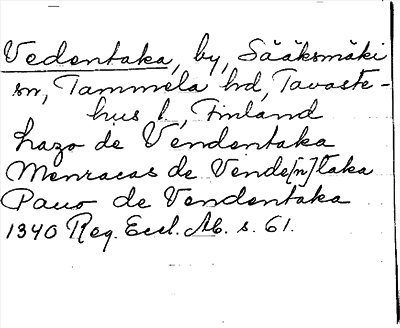 Vedentaka, by, Sääksmäki
sn, Tammela hd, Tavaste-
hus l., Finland
Lazo de Vendentaka
Menracas de Vende[n]taka
Pauo de Vendentaka
1340 Reg. Eccl. Ab. s. 61.